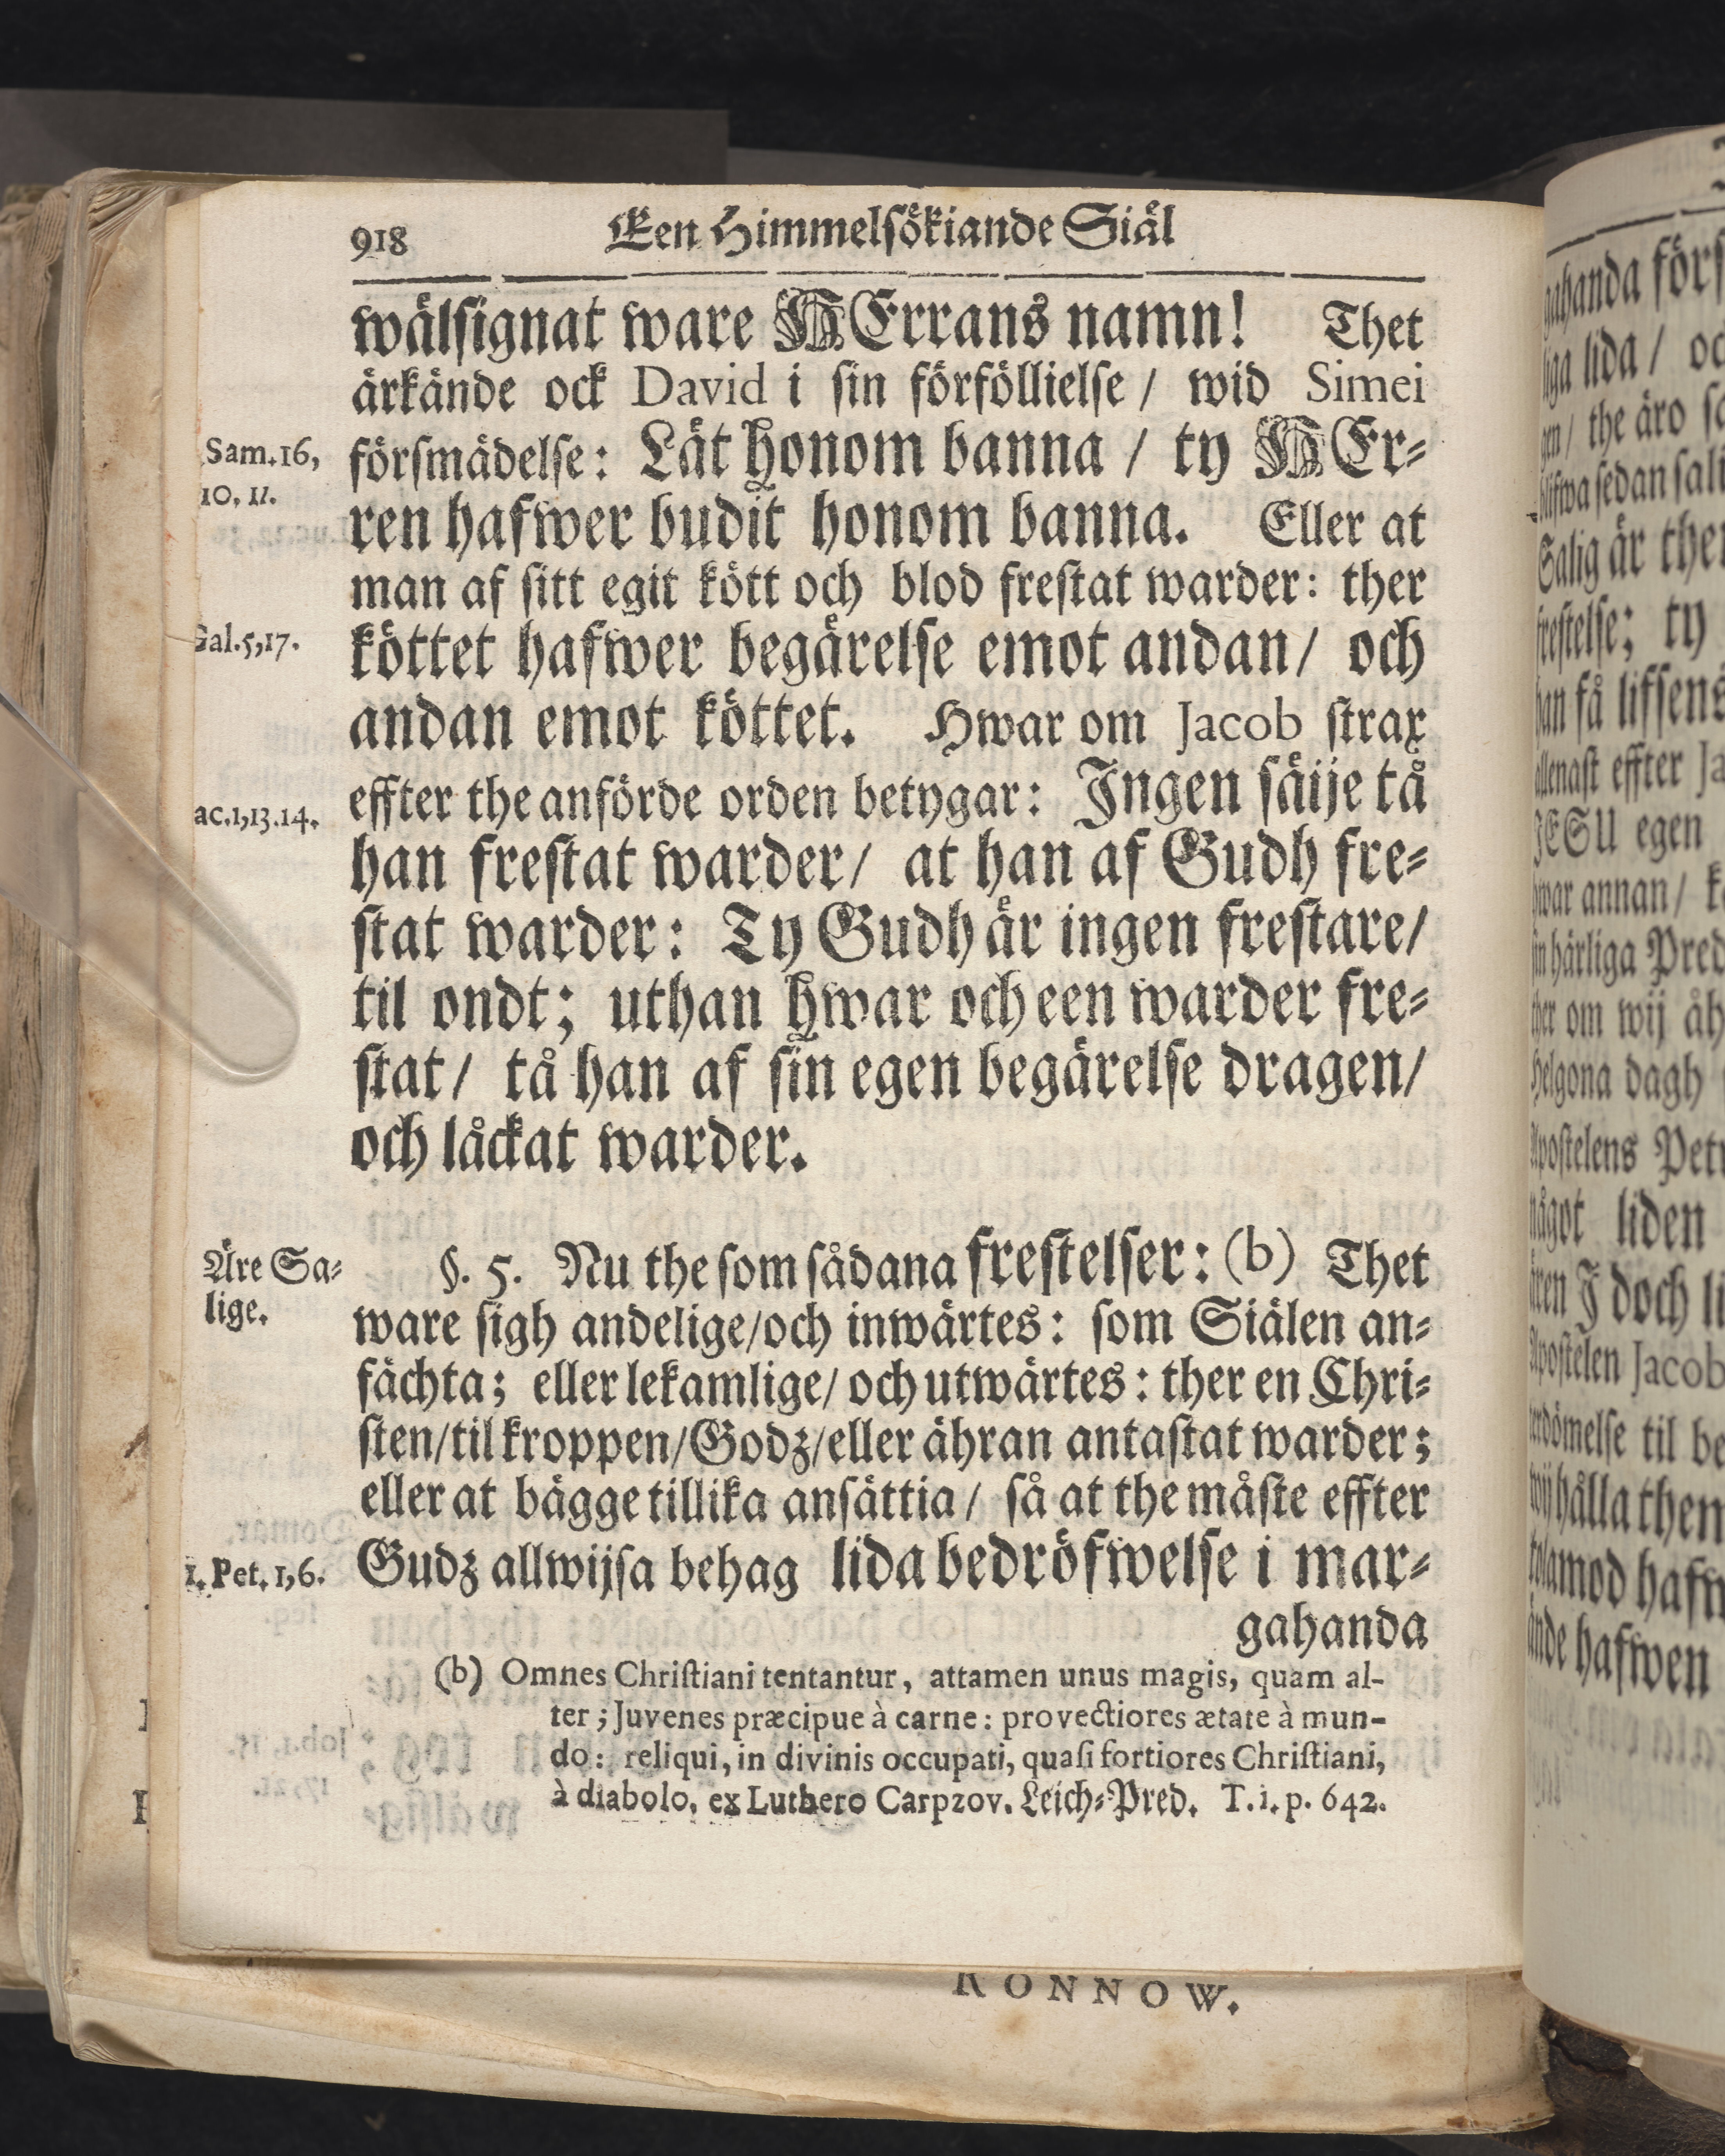 918 Een Himmelsökiande Siäl
wälsignat ware HErrans namn! Thet
ärkände ock David i sin förföllielse / wid Simei
Sam. 16,
försmädelse: Lät honom banna / ty HEr-
10, 11.
ren hafwer budit honom banna. Eller at
man af sitt egit kött och blod frestat warder: ther
Gal. 5, 17.
köttet hafwer begärelse emot andan / och
andan emot köttet. Hwar om Jacob strax
ac. 1, 13. 14.
effter the anförde orden betygar: Ingen säije tå
han frestat warder / at han af Gudh fre-
stat warder: Ty Gudh är ingen frestare /
til ondt; uthan hwar och een warder fre-
stat / tå han af sin egen begärelse dragen /
och låckat warder.
Äre Sa-
lige.
§. 5. Nu the som sådana frestelser: (b) Thet
ware sigh andelige / och inwärtes: som Siälen an-
fächta; eller lekamlige / och utwärtes: ther en Chri-
sten / til kroppen / Godz / eller ähran antastat warder;
eller at bägge tillika ansättia / så at the måste effter
1. Pet. 1, 6.
Gudz allwijsa behag lida bedröfwelse i mar-
gahanda
(b) Omnes Christiani tentantur, attamen unus magis, quam al-
ter; Juvenes præcipue à carne: provectiores ætate à mun-
do: reliqui, in divinis occupati, quasi fortiores Christiani,
à diabolo, ex Luthero Carpzov. Leich-Pred. T. 1. p. 642.
RONNOW.
gahanda
lida /
the äro
sedan
Salig är
ty
få lifsens
effter
JESU egen
annan /
härliga
om wij
dagh
Apostelens
liden
J doch
Apostelen Jacob
til
hålla then
hafwen